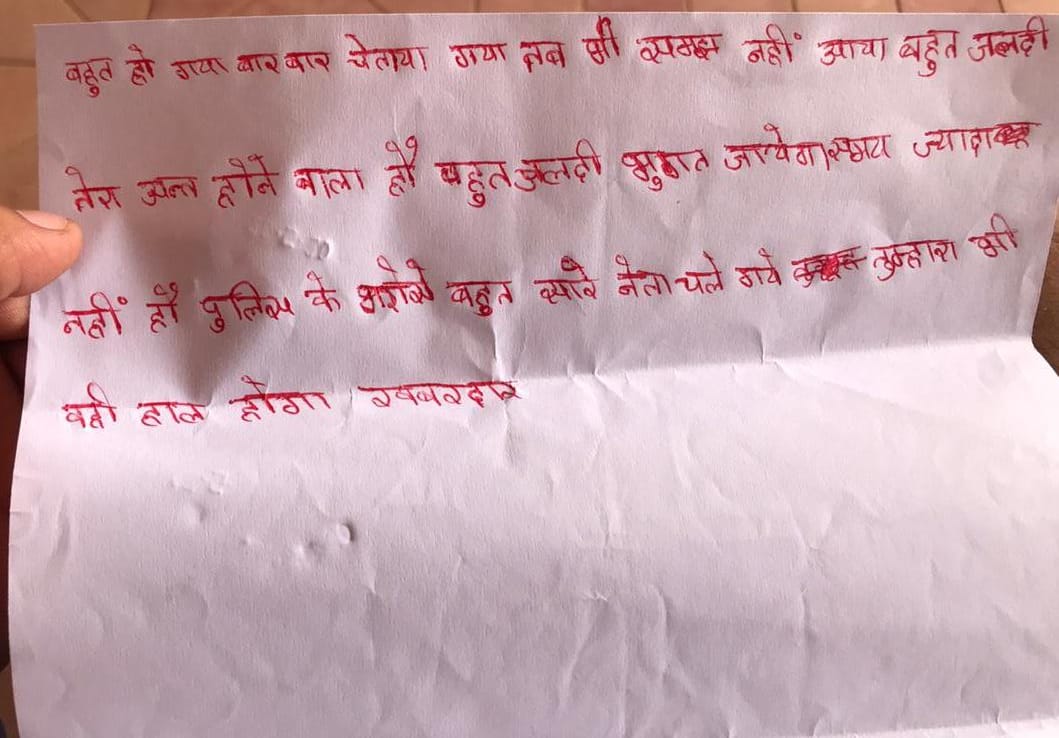 बहुत हो गया बार बार चेताया गया तब भी समझ नहीं आया बहुत जलदी
तेरा अन्त होने वाला है बहुत जलदी भुगत जायेगा समय ज्यादा
नहीं है पुलिस के भरोसे बहुत सारे नेता चले गये तुम्हारा भी
वही हाल होगा, खबरदार